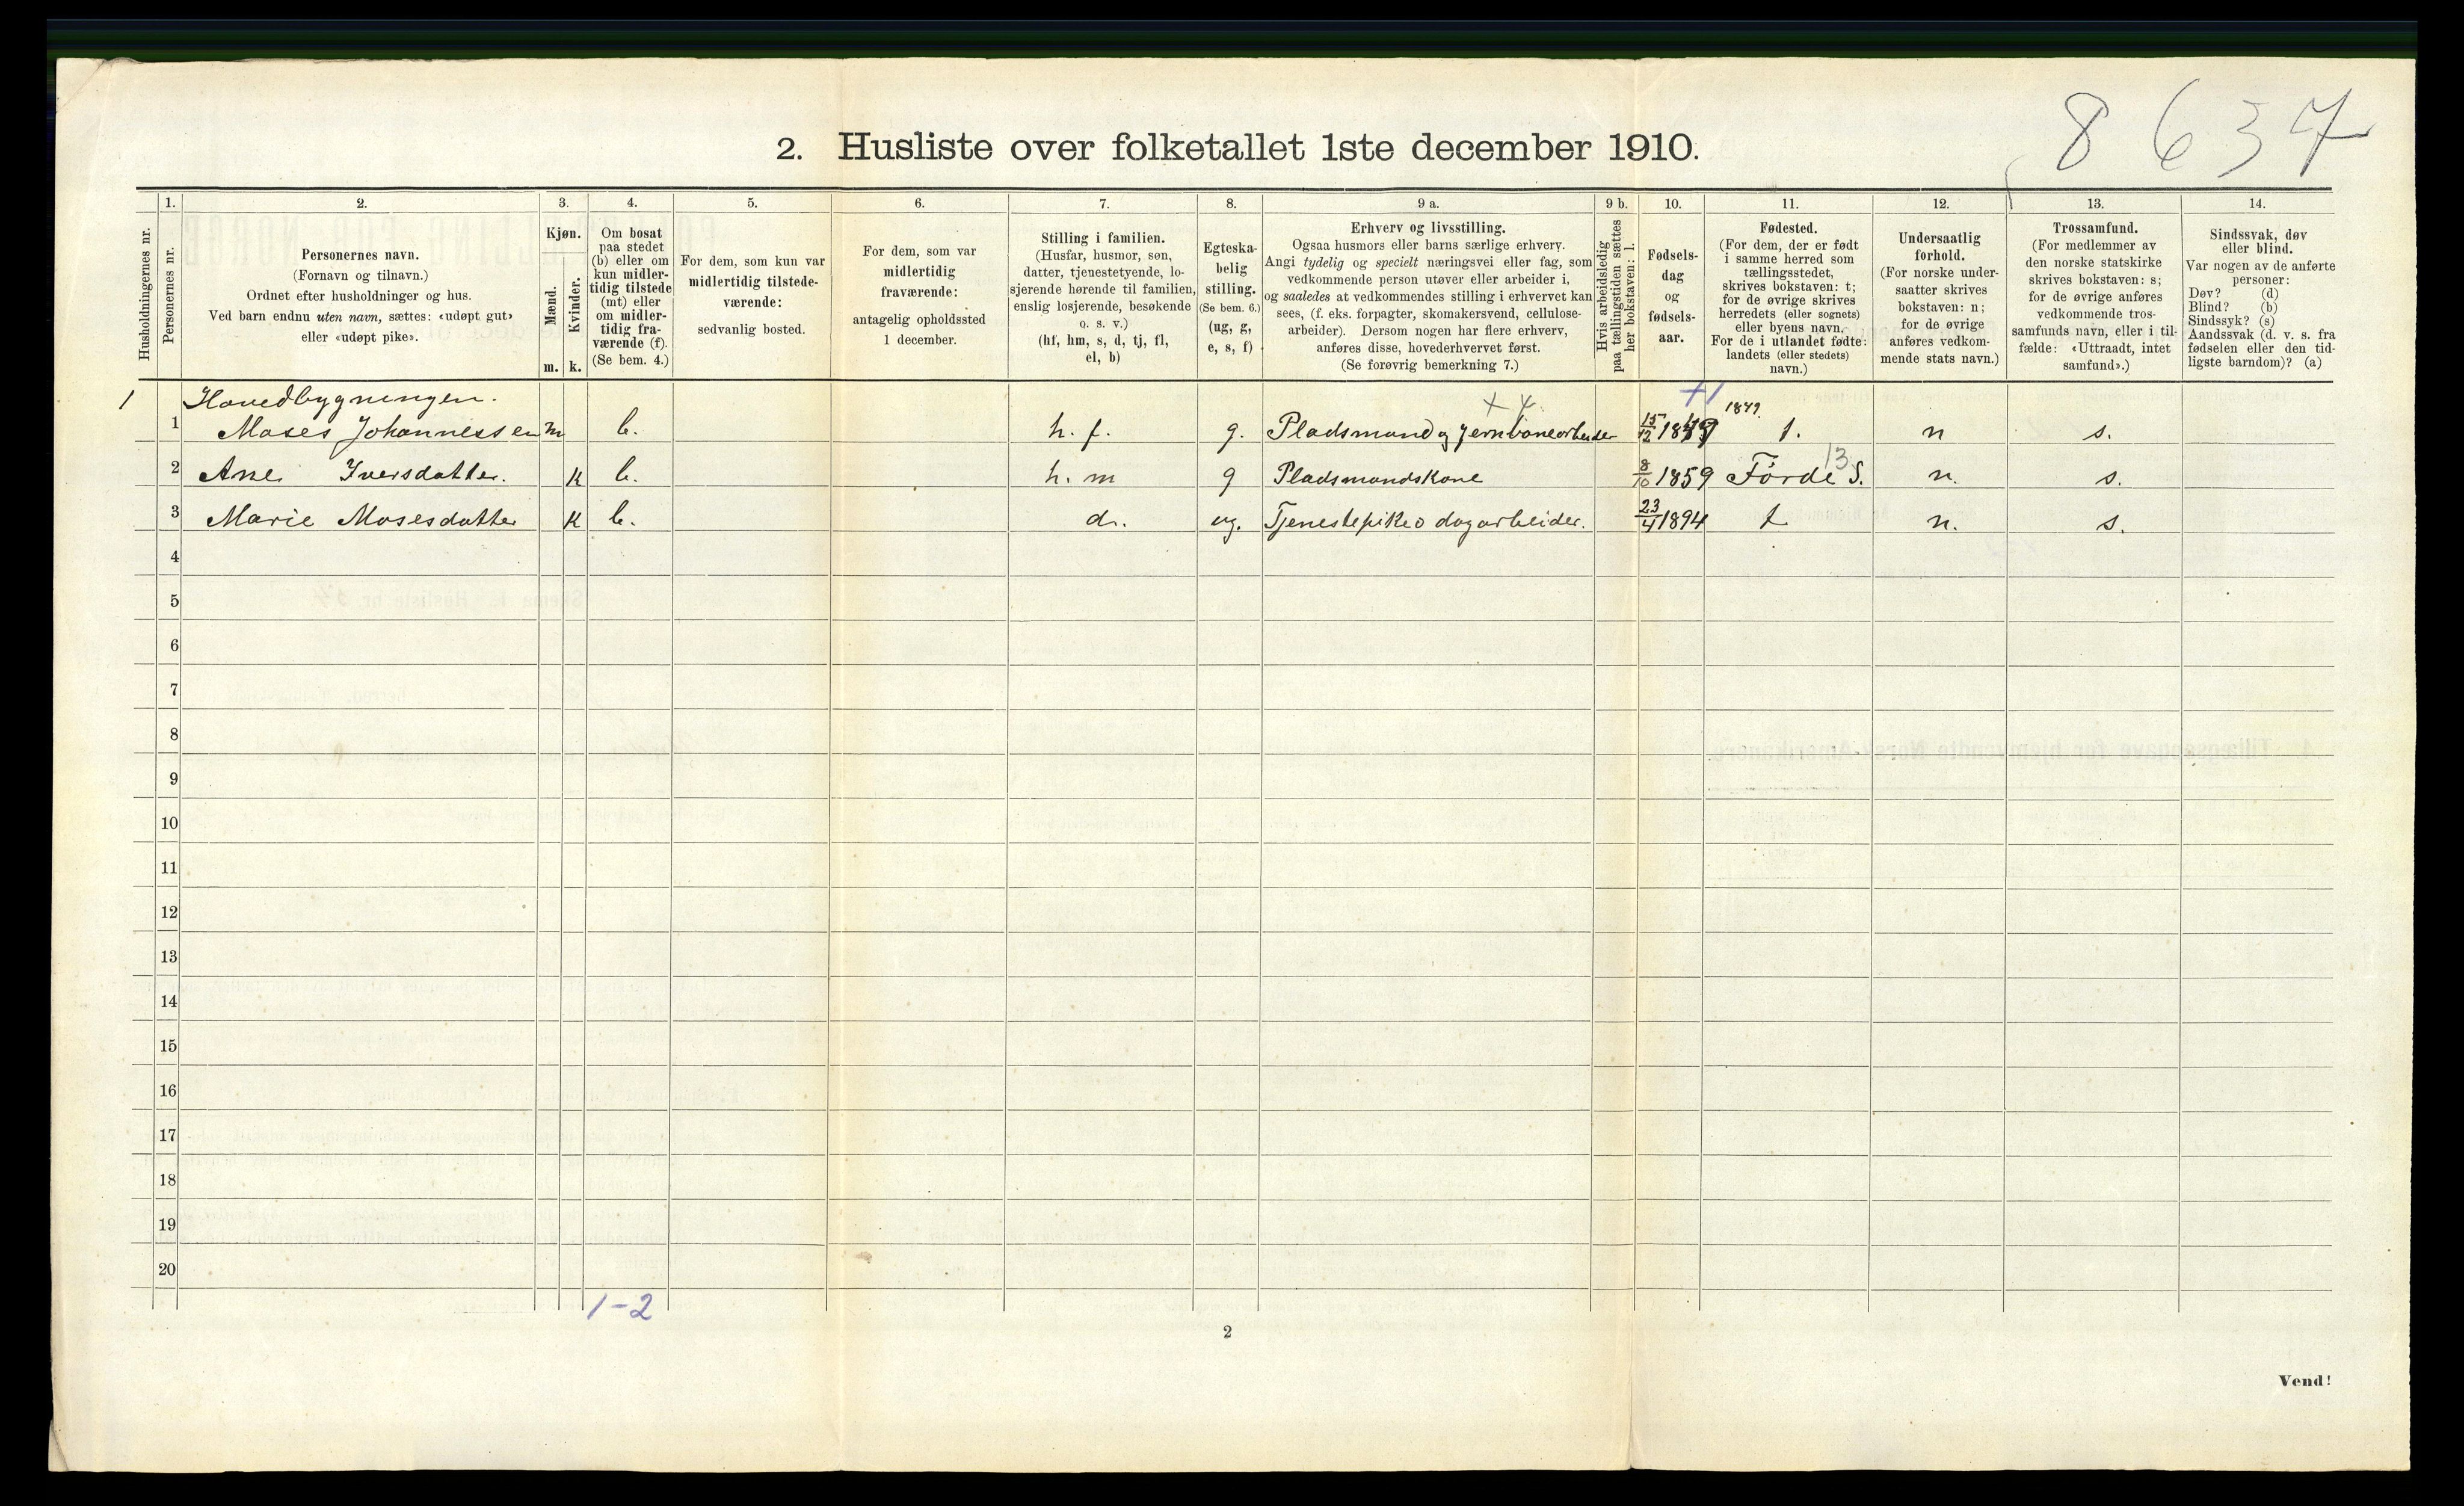 8 6 3 7
2. Husliste over folketallet 1ste december 1910.
1. 2. 3. 4. 5. 6. 7. 8. 9 a. 9 b. 10. 11. 12. 13. 14.
Husholdningernes nr.
Personernes nr.
Personernes navn.
(Fornavn og tilnavn.)
Ordnet efter husholdninger og hus.
Ved barn endnu uten navn, sættes: «udøpt gut»
eller «udøpt pike».
Kjøn.
Mænd.
Kvinder.
m. k.
Om bosat
paa stedet
(b) eller om
kun midler-
tidig tilstede
(mt) eller
om midler-
tidig fra-
værende (f).
(Se bem. 4.)
For dem, som kun var
midlertidig tilstede-
værende:
sedvanlig bosted.
For dem, som var
midlertidig
fraværende:
antagelig opholdssted
1 december.
Stilling i familien.
(Husfar, husmor, søn,
datter, tjenestetyende, lo-
sjerende hørende til familien,
enslig losjerende, besøkende
o. s. v.)
(hf, hm, s, d, tj, fl,
el, b)
Egteska-
belig
stilling.
(Se bem. 6.)
(ug, g,
e, s, f)
Erhverv og livsstilling.
Ogsaa husmors eller barns særlige erhverv.
Angi tydelig og specielt næringsvei eller fag, som
vedkommende person utøver eller arbeider i,
og saaledes at vedkommendes stilling i erhvervet kan
sees, (f. eks. forpagter, skomakersvend, cellulose-
arbeider). Dersom nogen har flere erhverv,
anføres disse, hovederhvervet først.
(Se forøvrig bemerkning 7.)
Hvis arbeidsledig
paa tællingstiden sættes
her bokstaven: l.
Fødsels-
dag
og
fødsels-
aar.
Fødested.
(For dem, der er født
i samme herred som
tællingsstedet,
skrives bokstaven: t;
for de øvrige skrives
herredets (eller sognets)
eller byens navn.
For de i utlandet fødte:
landets (eller stedets)
navn.)
Undersaatlig
forhold.
(For norske under-
saatter skrives
bokstaven: n;
for de øvrige
anføres vedkom-
mende stats navn.)
Trossamfund.
(For medlemmer av
den norske statskirke
skrives bokstaven: s;
for de øvrige anføres
vedkommende tros-
samfunds navn, eller i til-
fælde: «Uttraadt, intet
samfund».)
Sindssvak, døv
eller blind.
Var nogen av de anførte
personer:
Døv? (d)
Blind? (b)
Sindssyk? (s)
Aandssvak (d. v. s. fra
fødselen eller den tid-
ligste barndom)? (a)
1 Hovedbygningen. + 4 +1 1849
1 Moses Johannessen m b. h. f. g. Pladsmand og Jernbanearbeider 15/12 1849 t. n s.
2 Ane Iversdatter. k b. h. m g Pladsmandskone 8/10 1859 Förde S. 13 n. s.
3 Marie Mosesdatter k b. d. ug. Tjenestepike o dagarbeider. 23/4 1894 t n. s.
4
5
6
7
8
9
10
11
12
13
14
15
16
17
18
19
20
1-2
2
Vend!